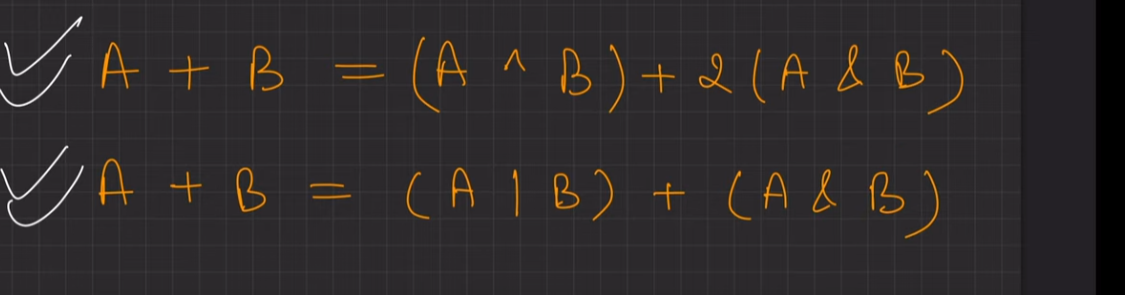 A + B = (A ^ B) + 2(A & B)
A + B = (A | B) + (A & B)